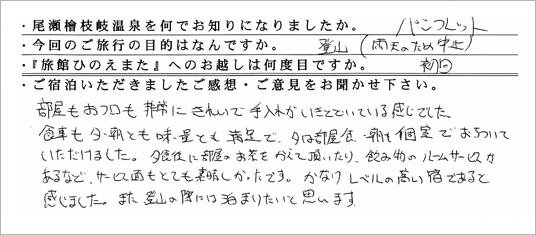 ・尾瀬檜枝岐温泉を何でお知りになりましたか。 パンフレット
・今回のご旅行の目的はなんですか。 登山(雨天のため中止)
・『旅館ひのえまた』へのお越しは何度目ですか。 初回
・ご宿泊いただきましたご感想・ご意見をお聞かせ下さい。
部屋もおフロも非常にきれいで手入れがいきとどいている感じでした。
食事も夕・朝とも味・量とも満足で、夕は部屋食、朝も個室で
いただけました。夕食後に部屋のお茶をかえて頂いたり、飲み物のルームサービスが
あるなど、サービス面もとても素晴しかったです。かなりレベルの高い宿であると
感じました。また登山の際には泊まりたいと思います。